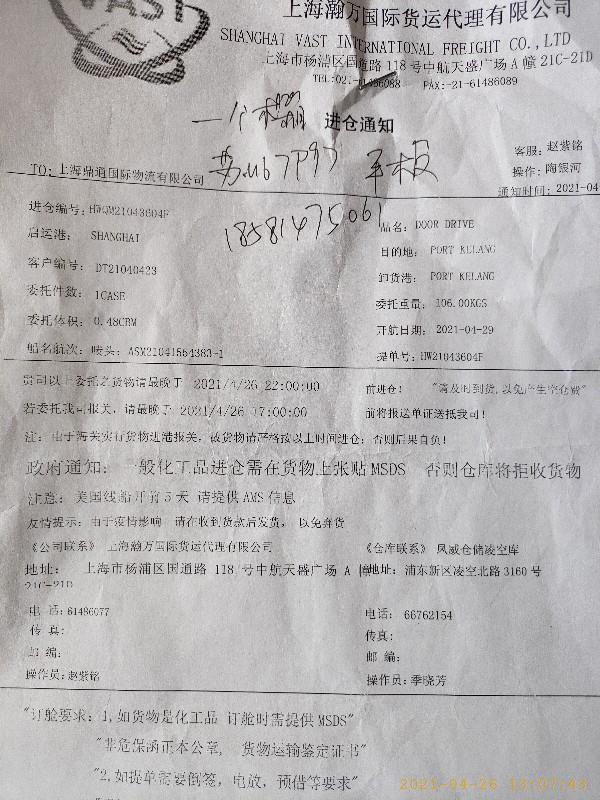 VAST
上海瀚万国际货运代理有限公司
SHANGHAI VAST INTERNATIONAL FREIGHT CO.,LTD
上海市杨浦区国通路 118 号中航天盛广场 A 幢 21C-21D
FAX:-21-61486089
一个木箱
进仓通知
客服: 赵紫铭
TO: 上海鼎通国际物流有限公司
平板
操作: 陶银河
通知时间: 2021-04
进仓编号: HWQM21043604F
18581475061
品名: DOOR DRIVE
启运港: SHANGHAI
目的地: PORT KELANG
客户编号: DT21040423
卸货港: PORT KELANG
委托件数: 1CASE
委托重量: 106.00KGS
委托体积: 0.48CBM
开航日期: 2021-04-29
船名航次: 唛头: ASM21041554383-1
提单号: HW21043604F
贵司以上委托之货物请最晚于 2021/4/26 22:00:00
前进仓! "请及时到货,以免产生空仓费"
若委托我司报关, 请最晚于 2021/4/26 17:00:00
前将报送单证送抵我司!
注: 由于海关实行货物进港报关, 故货物请严格按以上时间进仓; 否则后果自负!
政府通知: 一般化工品进仓需在货物上张贴 MSDS 否则仓库将拒收货物
注意: 美国线船开前 5 天 请提供 AMS 信息
友情提示: 由于疫情影响 请在收到货款后发货, 以免弃货
《公司联系》 上海瀚万国际货运代理有限公司
《仓库联系》 风威仓储凌空库
地址: 上海市杨浦区国通路 118 号中航天盛广场 A 幢
21C-21D
地址: 浦东新区凌空北路 3160 号
电 话: 61486077
电话: 66762154
传 真:
传真:
邮 编:
邮 编:
操作员: 赵紫铭
操作员: 季晓芳
"订舱要求: 1, 如货物是化工品 订舱时需提供 MSDS"
"非危保函正本公章, 货物运输鉴定证书"
"2, 如提单需要倒签, 电放, 预借等要求"
2021-04-26 13:07:43